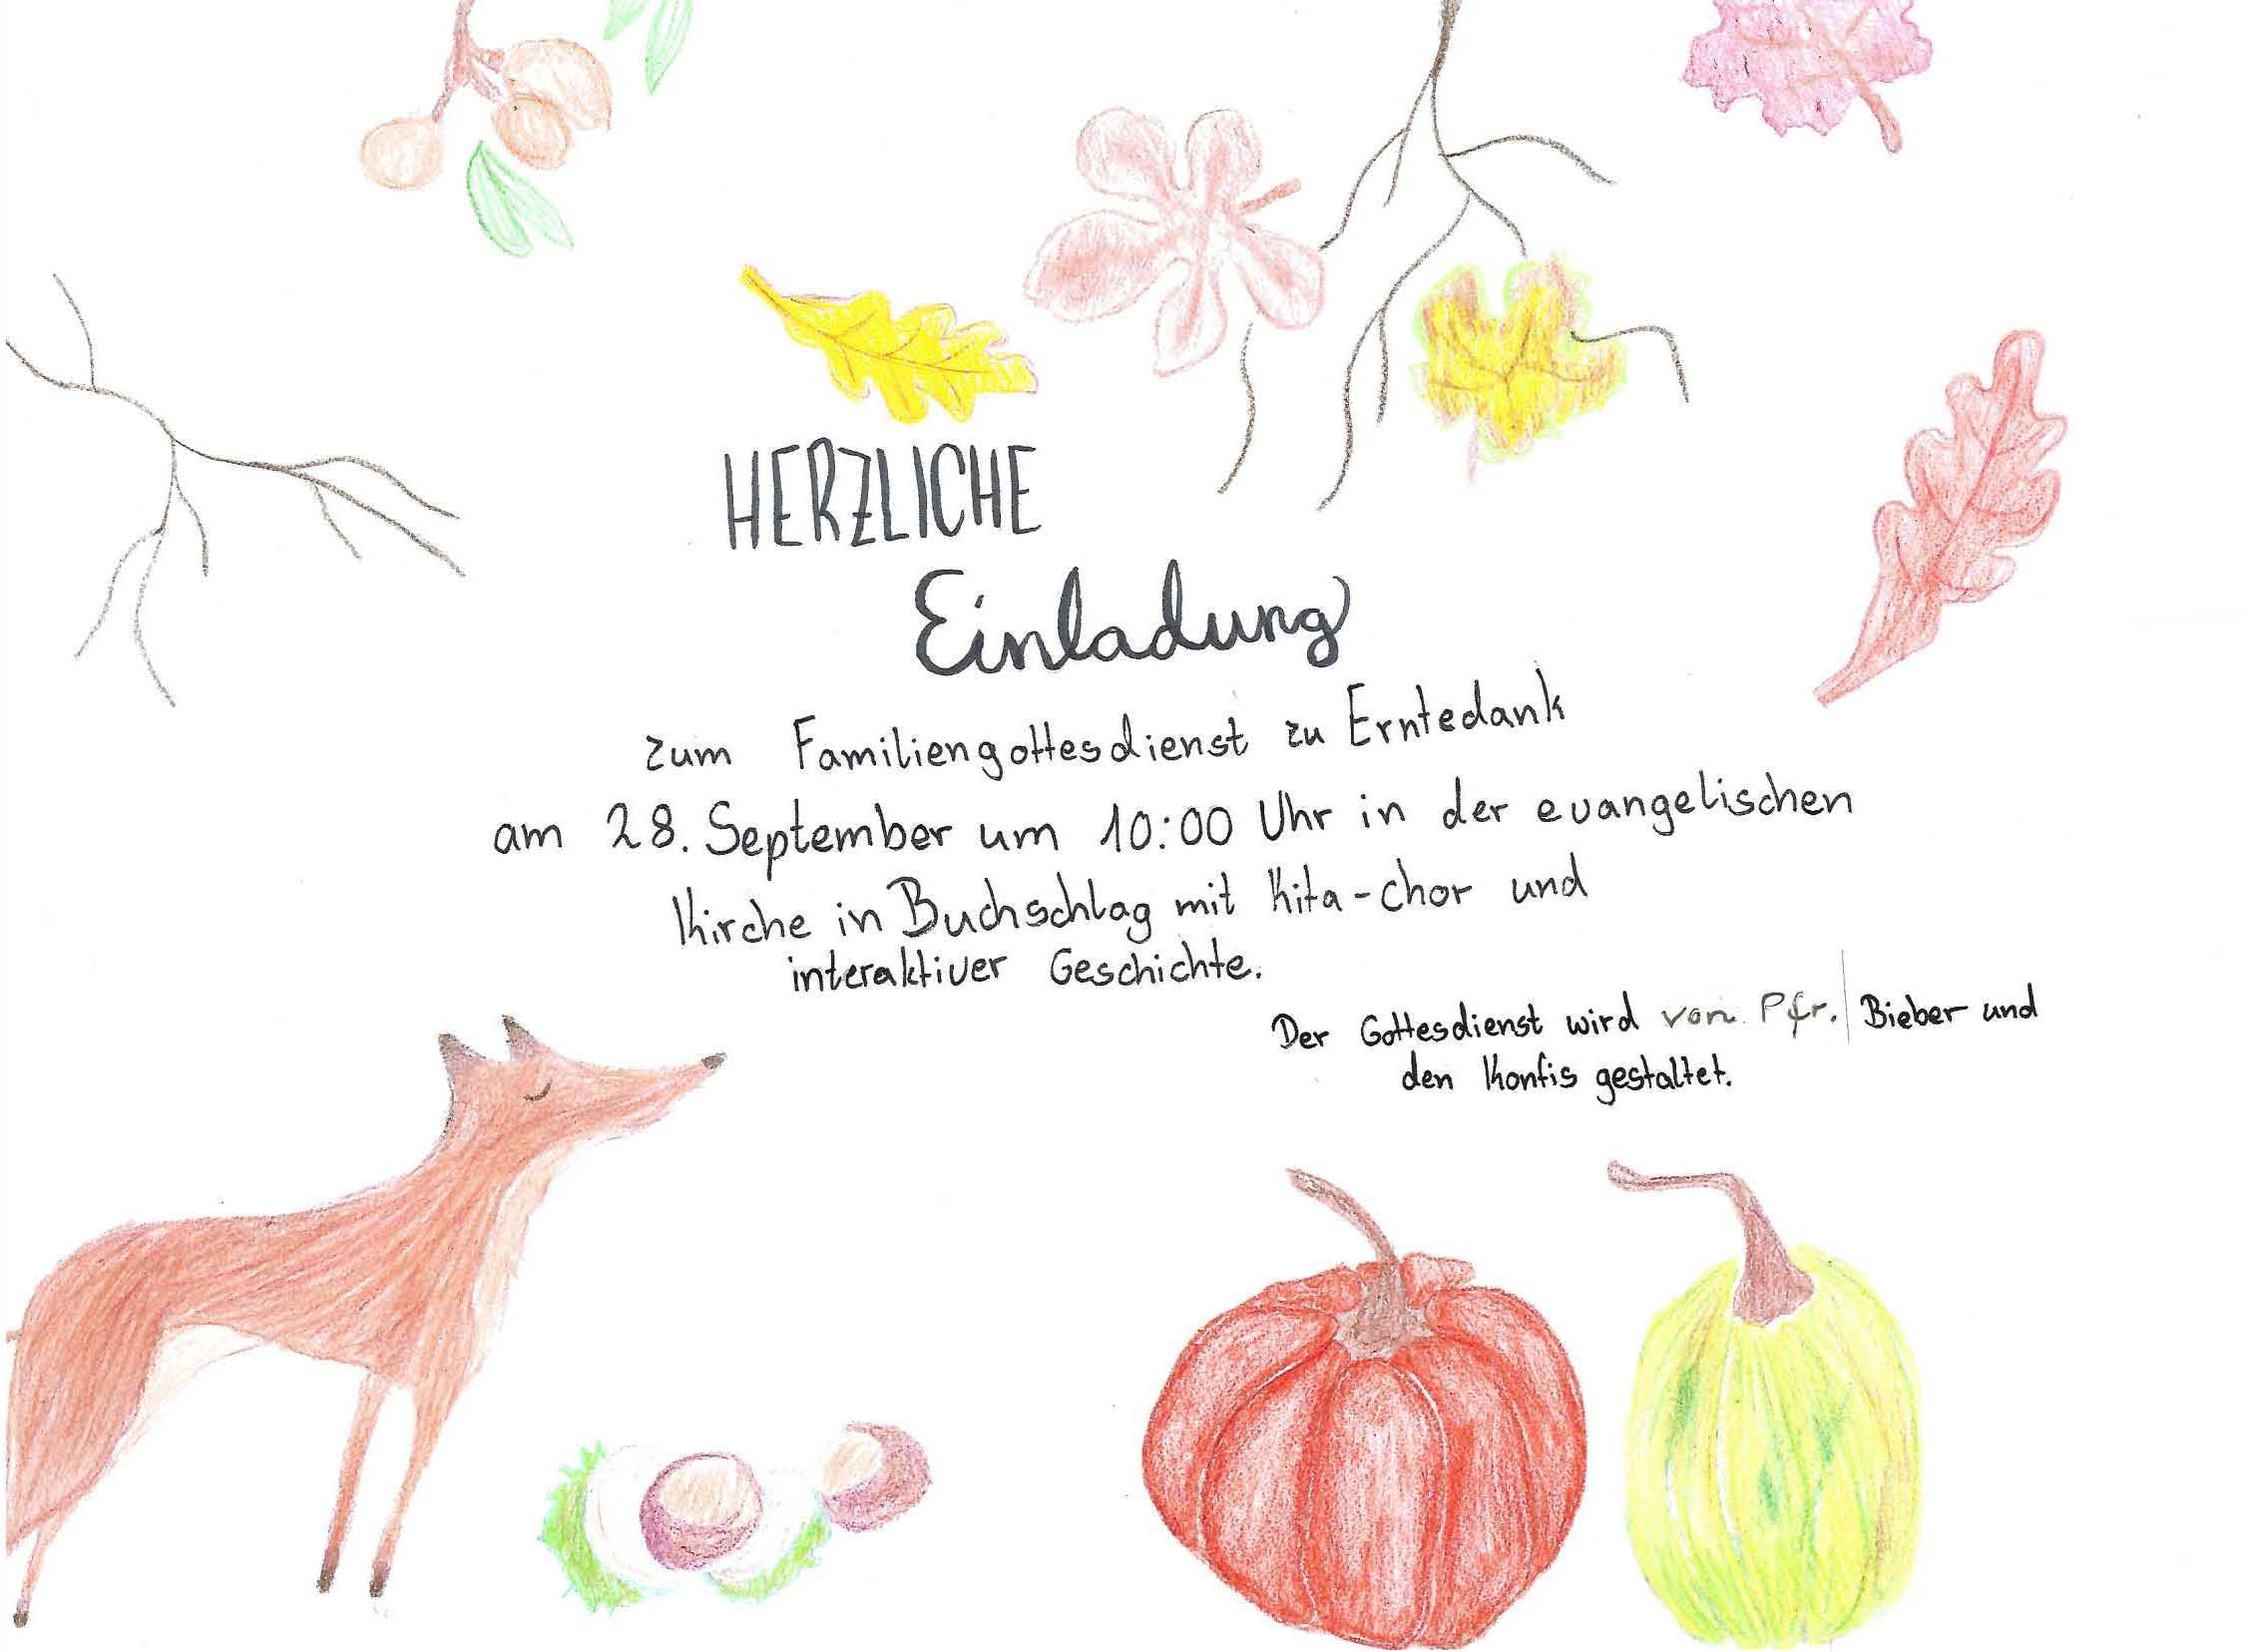 HERZLICHE
Einladung
zum Familiengottesdienst zu Erntedank
am 28. September um 10:00 Uhr in der evangelischen
Kirche in Buchschlag mit Kita-Chor und
interaktiver Geschichte.
Der Gottesdienst wird von Pfr. Bieber und
den Konfis gestaltet.